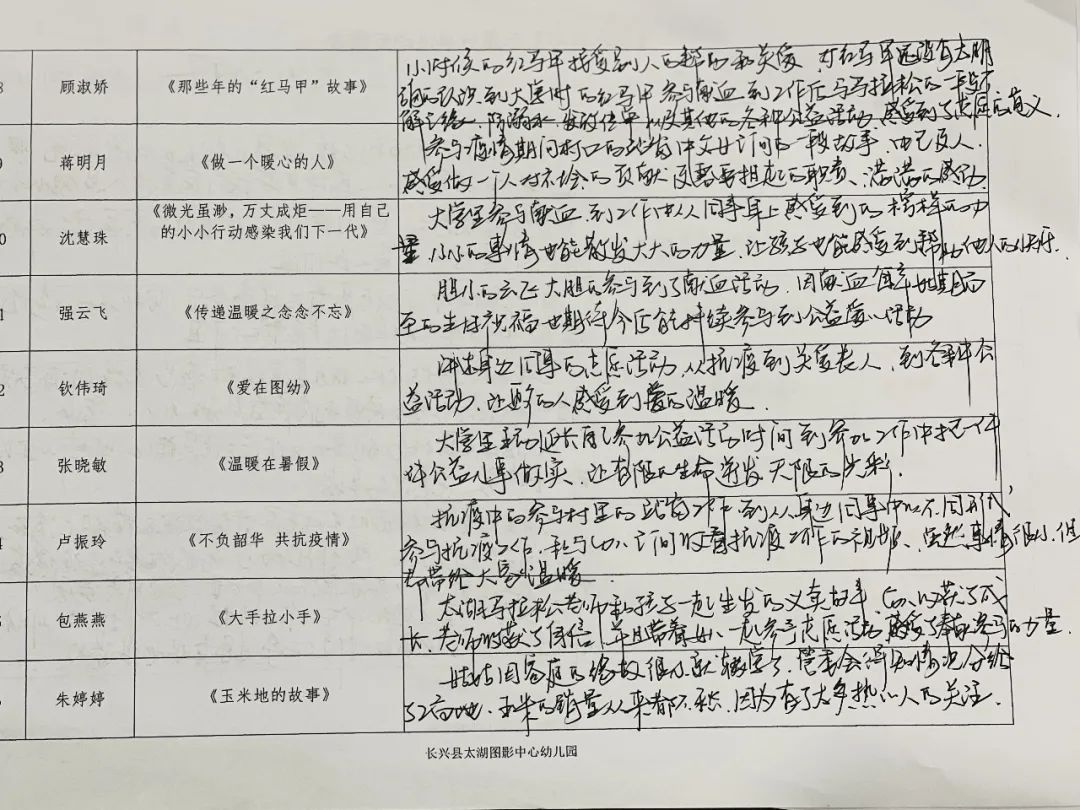 8 顾淑娇 《那些年的“红马甲”故事》
小时候的红马甲接受别人的帮助和关爱,对红马甲还没有太明
的认识到大学时的红马甲参与献血到工作后马拉松的一
解之缘、防溺水、发放传单以及其他的各种公益活动,感受到了志愿的意义
9 蒋明月 《做一个暖心的人》
参与疫情期间村口的站岗中父女间的一段故事,由己及人,
感受做一个人对社会的贡献及需要担起的职责、满满的感动.
0 沈慧珠 《微光虽渺,万丈成炬——用自己
的小小行动感染我们下一代》
大学里参与献血,到工作中从同事身上感受到的榜样的力
量,小小的事情也能散发大大的力量,让孩子也能感受到帮助他人的快乐.
1 强云飞 《传递温暖之念念不忘》
胆小的云飞大胆的参与到了献血活动,因献血每年如期而
至的生日祝福也期待今后能持续参与到公益爱心活动
2 钦伟琦 《爱在图幼》
讲述身边同事的志愿活动,从抗疫到关爱老人,到各种公
益活动,让更多的人感受到爱的温暖.
3 张晓敏 《温暖在暑假》
大学里主动延长自己参加公益活动时间到参加工作中把一件
件公益小事做实,让有限的生命迸发无限的光彩.
4 卢振玲 《不负韶华 共抗疫情》
抗疫中的参与村里的站岗工作到从身边同事中以不同形式
参与抗疫工作,和幼儿间收看抗疫工作的视频、虽然事情很小,但
却带给大家温暖
5 包燕燕 《大手拉小手》
太湖马拉松老师和孩子一起生发的义卖故事,幼儿收获了成
长,老师收获了自信,并且带着幼儿一起参与志愿活动,感受了奉献参与的力量
朱婷婷 《玉米地的故事》
姑姑因家庭的缘故很小就辍学了,
了红高地、玉米的销量从来都不愁,因为有了太多热心人的关注.
长兴县太湖图影中心幼儿园